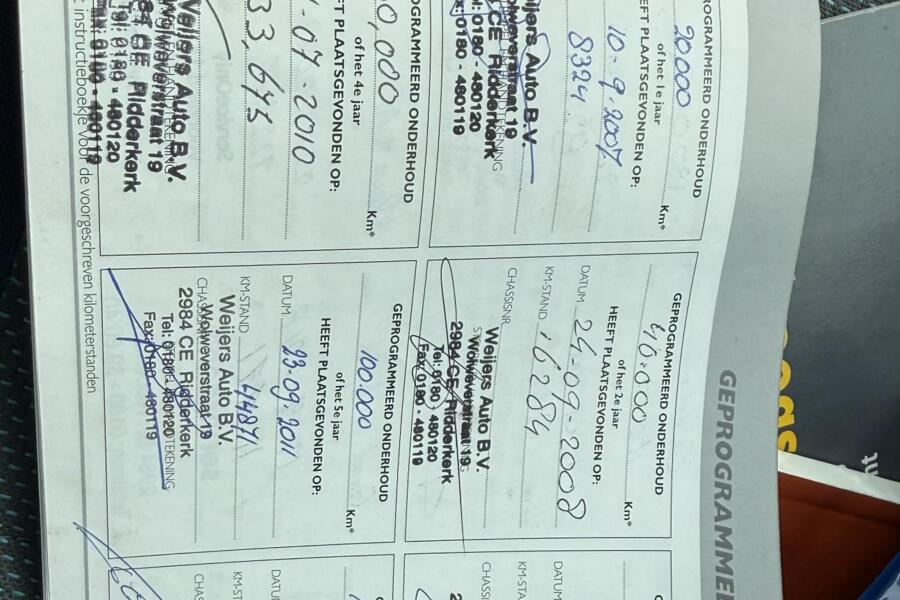 GEPROGRAMMEE
PROGRAMMEERD ONDERHOUD
20.000 Km*
of het 1e jaar
EEFT PLAATSGEVONDEN OP:
10-9-2007
8324
eijers Auto B.V.
olweverstraat 19
CE Ridderkerk
: 0180 - 480120
: 0180 - 480119
GEPROGRAMMEERD ONDERHOUD
40.000 Km*
of het 2e jaar
HEEFT PLAATSGEVONDEN OP:
DATUM 24-09-2008
KM-STAND 16284
CHASSISNR.
Weijers Auto B.V.
Wolweverstraat 19
2984 CE Ridderkerk
Tel: 0180 - 480120
Fax: 0180 - 480119
DATUM
KM-STA
CHASSI
OGRAMMEERD ONDERHOUD
0,000 Km*
of het 4e jaar
FT PLAATSGEVONDEN OP:
-07-2010
33,645
Weijers Auto B.V.
Wolweverstraat 19
84 CE Ridderkerk
Tel: 0180 - 480120
Fax: 0180 - 480119
GEPROGRAMMEERD ONDERHOUD
100.000 Km*
of het 5e jaar
HEEFT PLAATSGEVONDEN OP:
DATUM 23.09.2011
KM-STAND 44871
Weijers Auto B.V.
Wolweverstraat 19
2984 CE Ridderkerk
Tel: 0180 - 480120
Fax: 0180 - 480119
DATU
KM-ST
CHAS
instructieboekje voor de voorgeschreven kilometerstanden